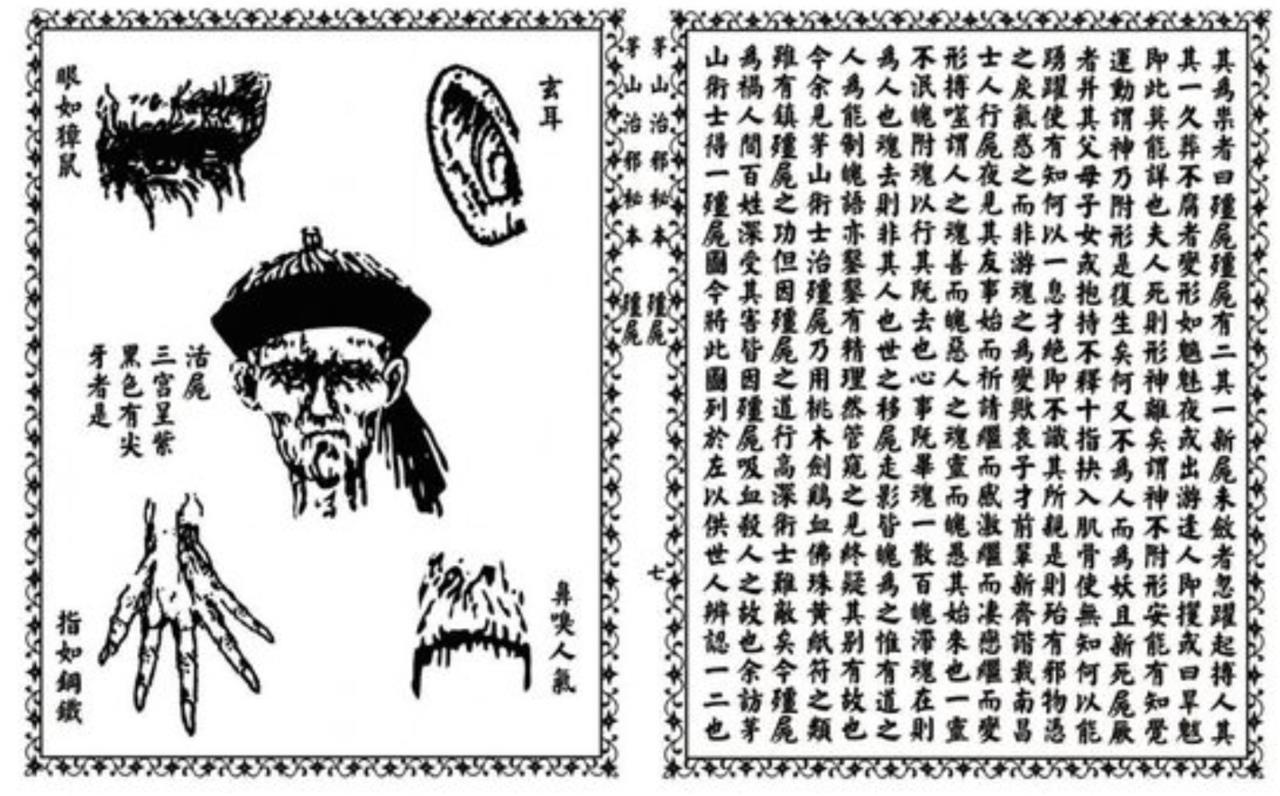 其為祟者曰殭屍殭屍有二其一新屍未斂者忽躍起搏人其
其一久葬不腐者變形如魑魅夜或出游逢人即攫或曰旱魃
即此莫能詳也夫人死則形神離矣謂神不附形安能有知覺
運動謂神乃附形是復生矣何又不為人而為妖且新死屍厥
者并其父母子女或抱持不釋十指抉入肌骨使無知何以能
踴躍使有知何以一息才絕即不識其所親是則殆有邪物憑
之戾氣惑之而非游魂之為變歟袁子才前輩新齊諧載南昌
士人行屍夜見其友事始而祈請繼而感激繼而凄戀繼而變
形搏噬謂人之魂善而魄惡人之魂靈而魄愚其始來也一靈
不泯魄附魂以行其既去也心事既畢魂一散百魄滯魂在則
為人也魂去則非其人也世之移屍走影皆魄為之惟有道之
人為能制魄語亦鑿鑿有精理然管窺之見終疑其別有故也
今余見茅山術士治殭屍乃用桃木劍鷄血佛珠黃紙符之類
雖有鎮殭屍之功但因殭屍之道行高深術士難敵矣今殭屍
為禍人間百姓深受其害皆因殭屍吸血殺人之故也余訪茅
山術士得一殭屍圖今將此圖列於左以供世人辨認一二也
茅山治邪秘本 殭屍 七
茅山治邪秘本 殭屍
玄耳
眼如獐鼠
活屍
三宮呈紫
黑色有尖
牙者是
鼻嗅人氣
指如鋼鐵